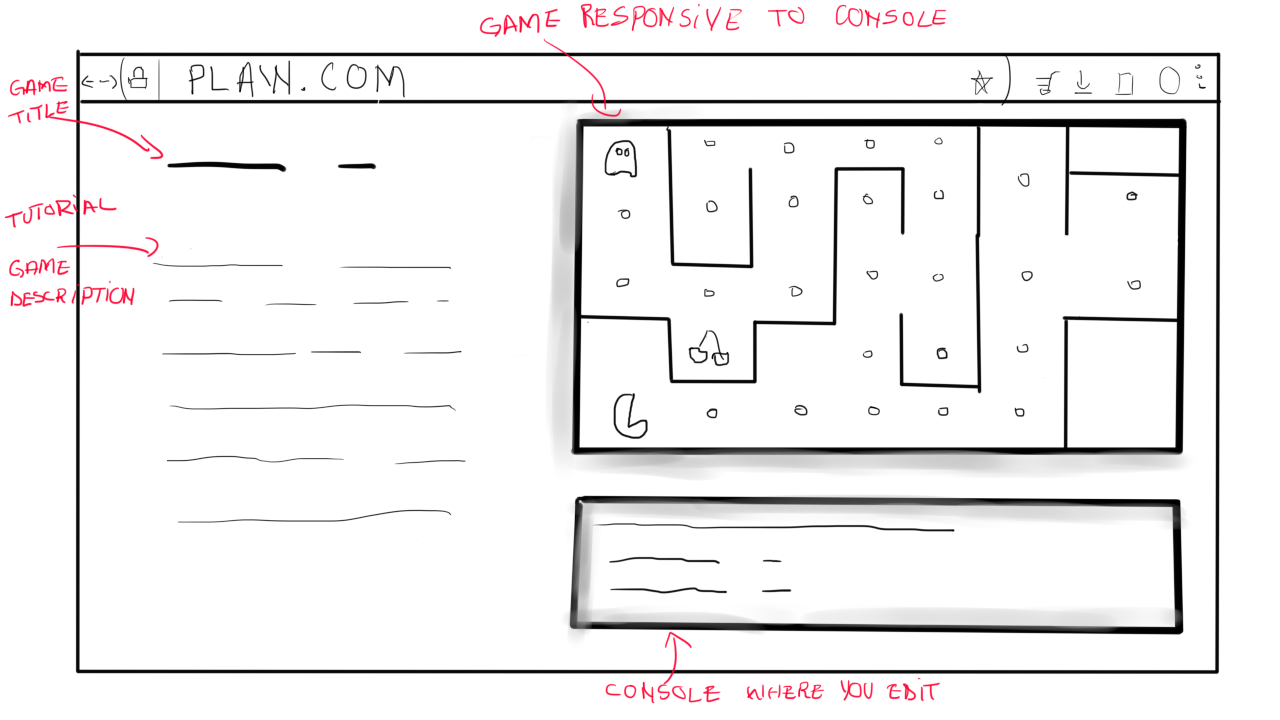 GAME RESPONSIVE TO CONSOLE
PLAW.COM
GAME
TITLE
TUTORIAL
GAME
DESCRIPTION
CONSOLE WHERE YOU EDIT